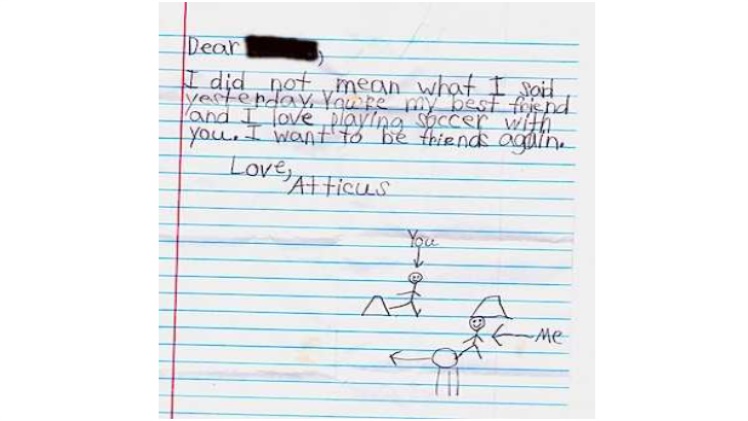 Dear
I did not mean what I said
yesterday. You're my best friend
and I love playing soccer with
you. I want to be friends again.
Love,
Atticus
You
Me